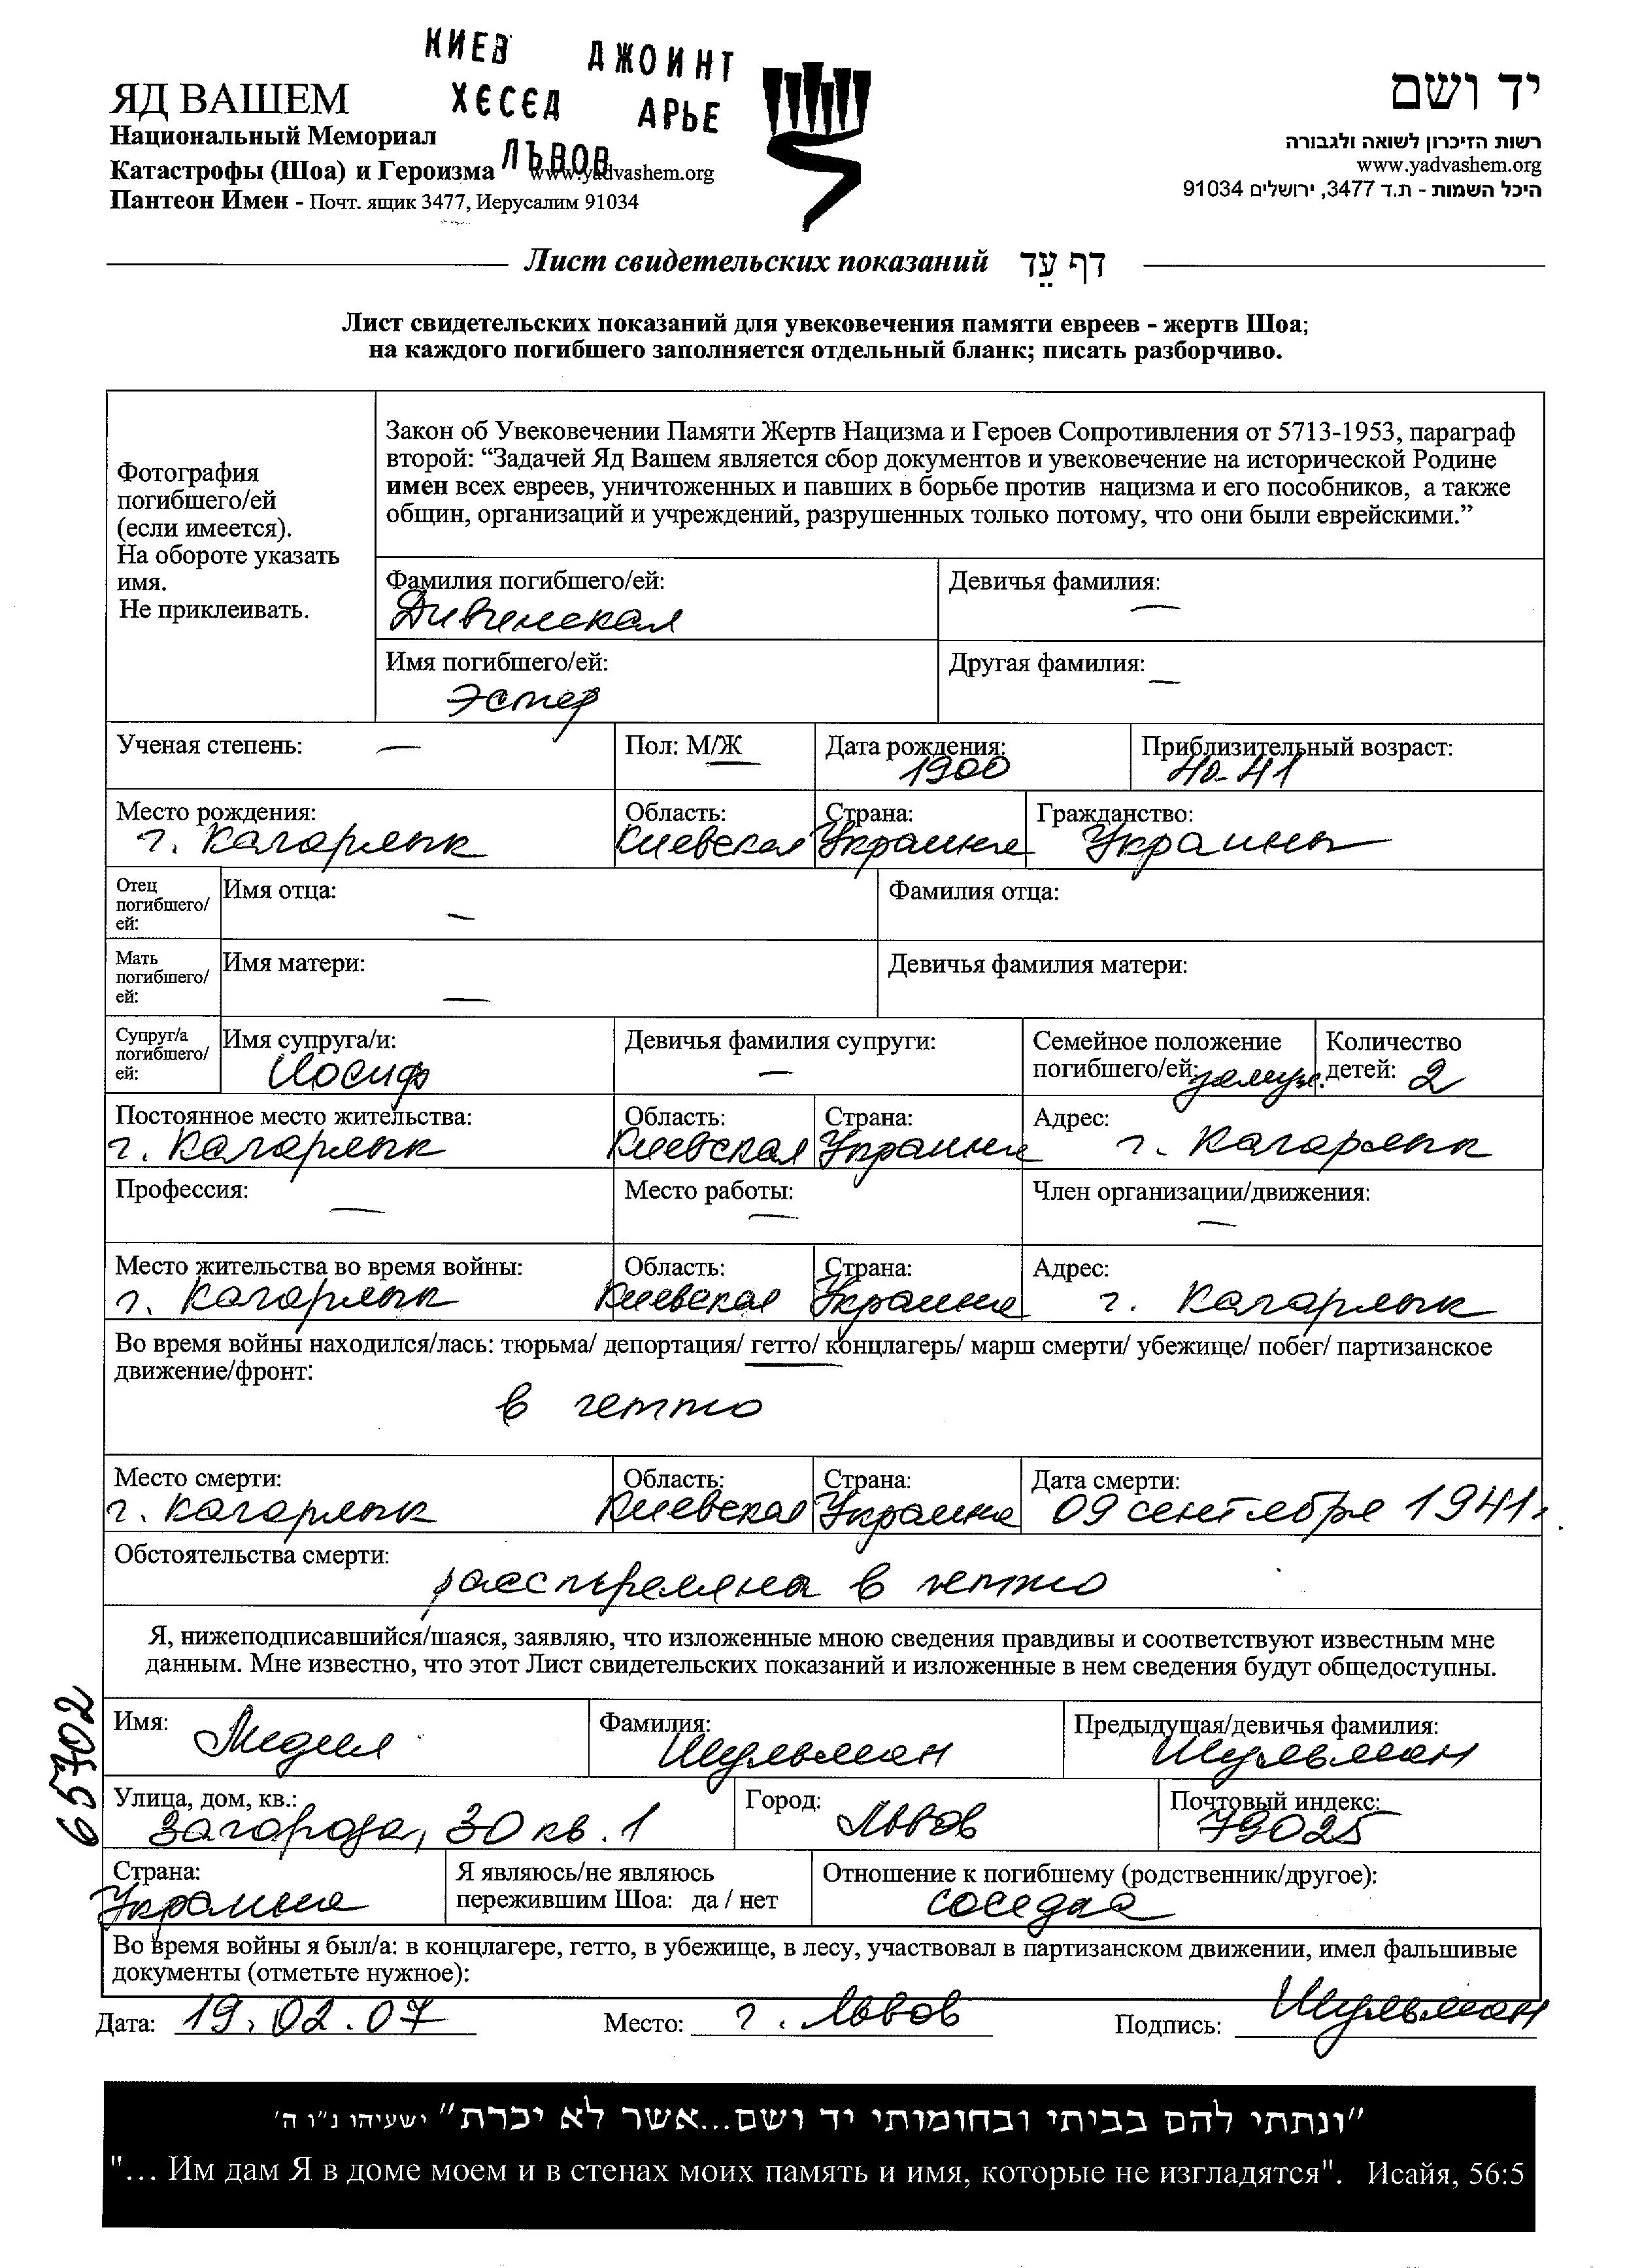 КИЕВ ДЖОИНТ
ХЕСЕД АРЬЕ
ЛЬВОВ
ЯД ВАШЕМ
Национальный Мемориал
Катастрофы (Шоа) и Героизма www.yadvashem.org
Пантеон Имен - Почт. ящик 3477, Иерусалим 91034
יד ושם
רשות הזיכרון לשואה ולגבורה
www.yadvashem.org
היכל השמות - ת.ד 3477, ירושלים 91034
Лист свидетельских показаний דף עֵד
Лист свидетельских показаний для увековечения памяти евреев - жертв Шоа;
на каждого погибшего заполняется отдельный бланк; писать разборчиво.
Фотография
погибшего/ей
(если имеется).
На обороте указать
имя.
Не приклеивать.
Закон об Увековечении Памяти Жертв Нацизма и Героев Сопротивления от 5713-1953, параграф
второй: “Задачей Яд Вашем является сбор документов и увековечение на исторической Родине
имен всех евреев, уничтоженных и павших в борьбе против нацизма и его пособников, а также
общин, организаций и учреждений, разрушенных только потому, что они были еврейскими.”
Фамилия погибшего/ей: Девичья фамилия:
Дивинская —
Имя погибшего/ей: Другая фамилия:
Эстер —
Ученая степень: — Пол: М/Ж Дата рождения: Приблизительный возраст:
1900 40-41
Место рождения: Область: Страна: Гражданство:
г. Кагарлык Киевская Украина Украины
Отец
погибшего/
ей:
Имя отца: Фамилия отца:
—
Мать
погибшего/
ей:
Имя матери: Девичья фамилия матери:
—
Супруг/а
погибшего/
ей:
Имя супруга/и: Девичья фамилия супруги: Семейное положение Количество
Иосиф — погибшего/ей: замуж. детей: 2
Постоянное место жительства: Область: Страна: Адрес:
г. Кагарлык Киевская Украина г. Кагарлык
Профессия: Место работы: Член организации/движения:
— — —
Место жительства во время войны: Область: Страна: Адрес:
г. Кагарлык Киевская Украина г. Кагарлык
Во время войны находился/лась: тюрьма/ депортация/ гетто/ концлагерь/ марш смерти/ убежище/ побег/ партизанское
движение/фронт:
в гетто
Место смерти: Область: Страна: Дата смерти:
г. Кагарлык Киевская Украина 09 сентября 1941г.
Обстоятельства смерти:
расстреляна в гетто
Я, нижеподписавшийся/шаяся, заявляю, что изложенные мною сведения правдивы и соответствуют известным мне
данным. Мне известно, что этот Лист свидетельских показаний и изложенные в нем сведения будут общедоступны.
65702
Имя: Фамилия: Предыдущая/девичья фамилия:
Шульман Шульман
Улица, дом, кв.: Город: Почтовый индекс:
Загородя, 30 кв. 1 Львов 79025
Страна: Я являюсь/не являюсь Отношение к погибшему (родственник/другое):
Украина пережившим Шоа: да / нет соседка
Во время войны я был/а: в концлагере, гетто, в убежище, в лесу, участвовал в партизанском движении, имел фальшивые
документы (отметьте нужное):
Дата: 19.02.07 Место: г. Львов Подпись: Шульман
"ונתתי להם בביתי ובחומותי יד ושם...אשר לא יכרת" ישעיהו נ"ו ה'
"... Им дам Я в доме моем и в стенах моих память и имя, которые не изгладятся". Исайя, 56:5